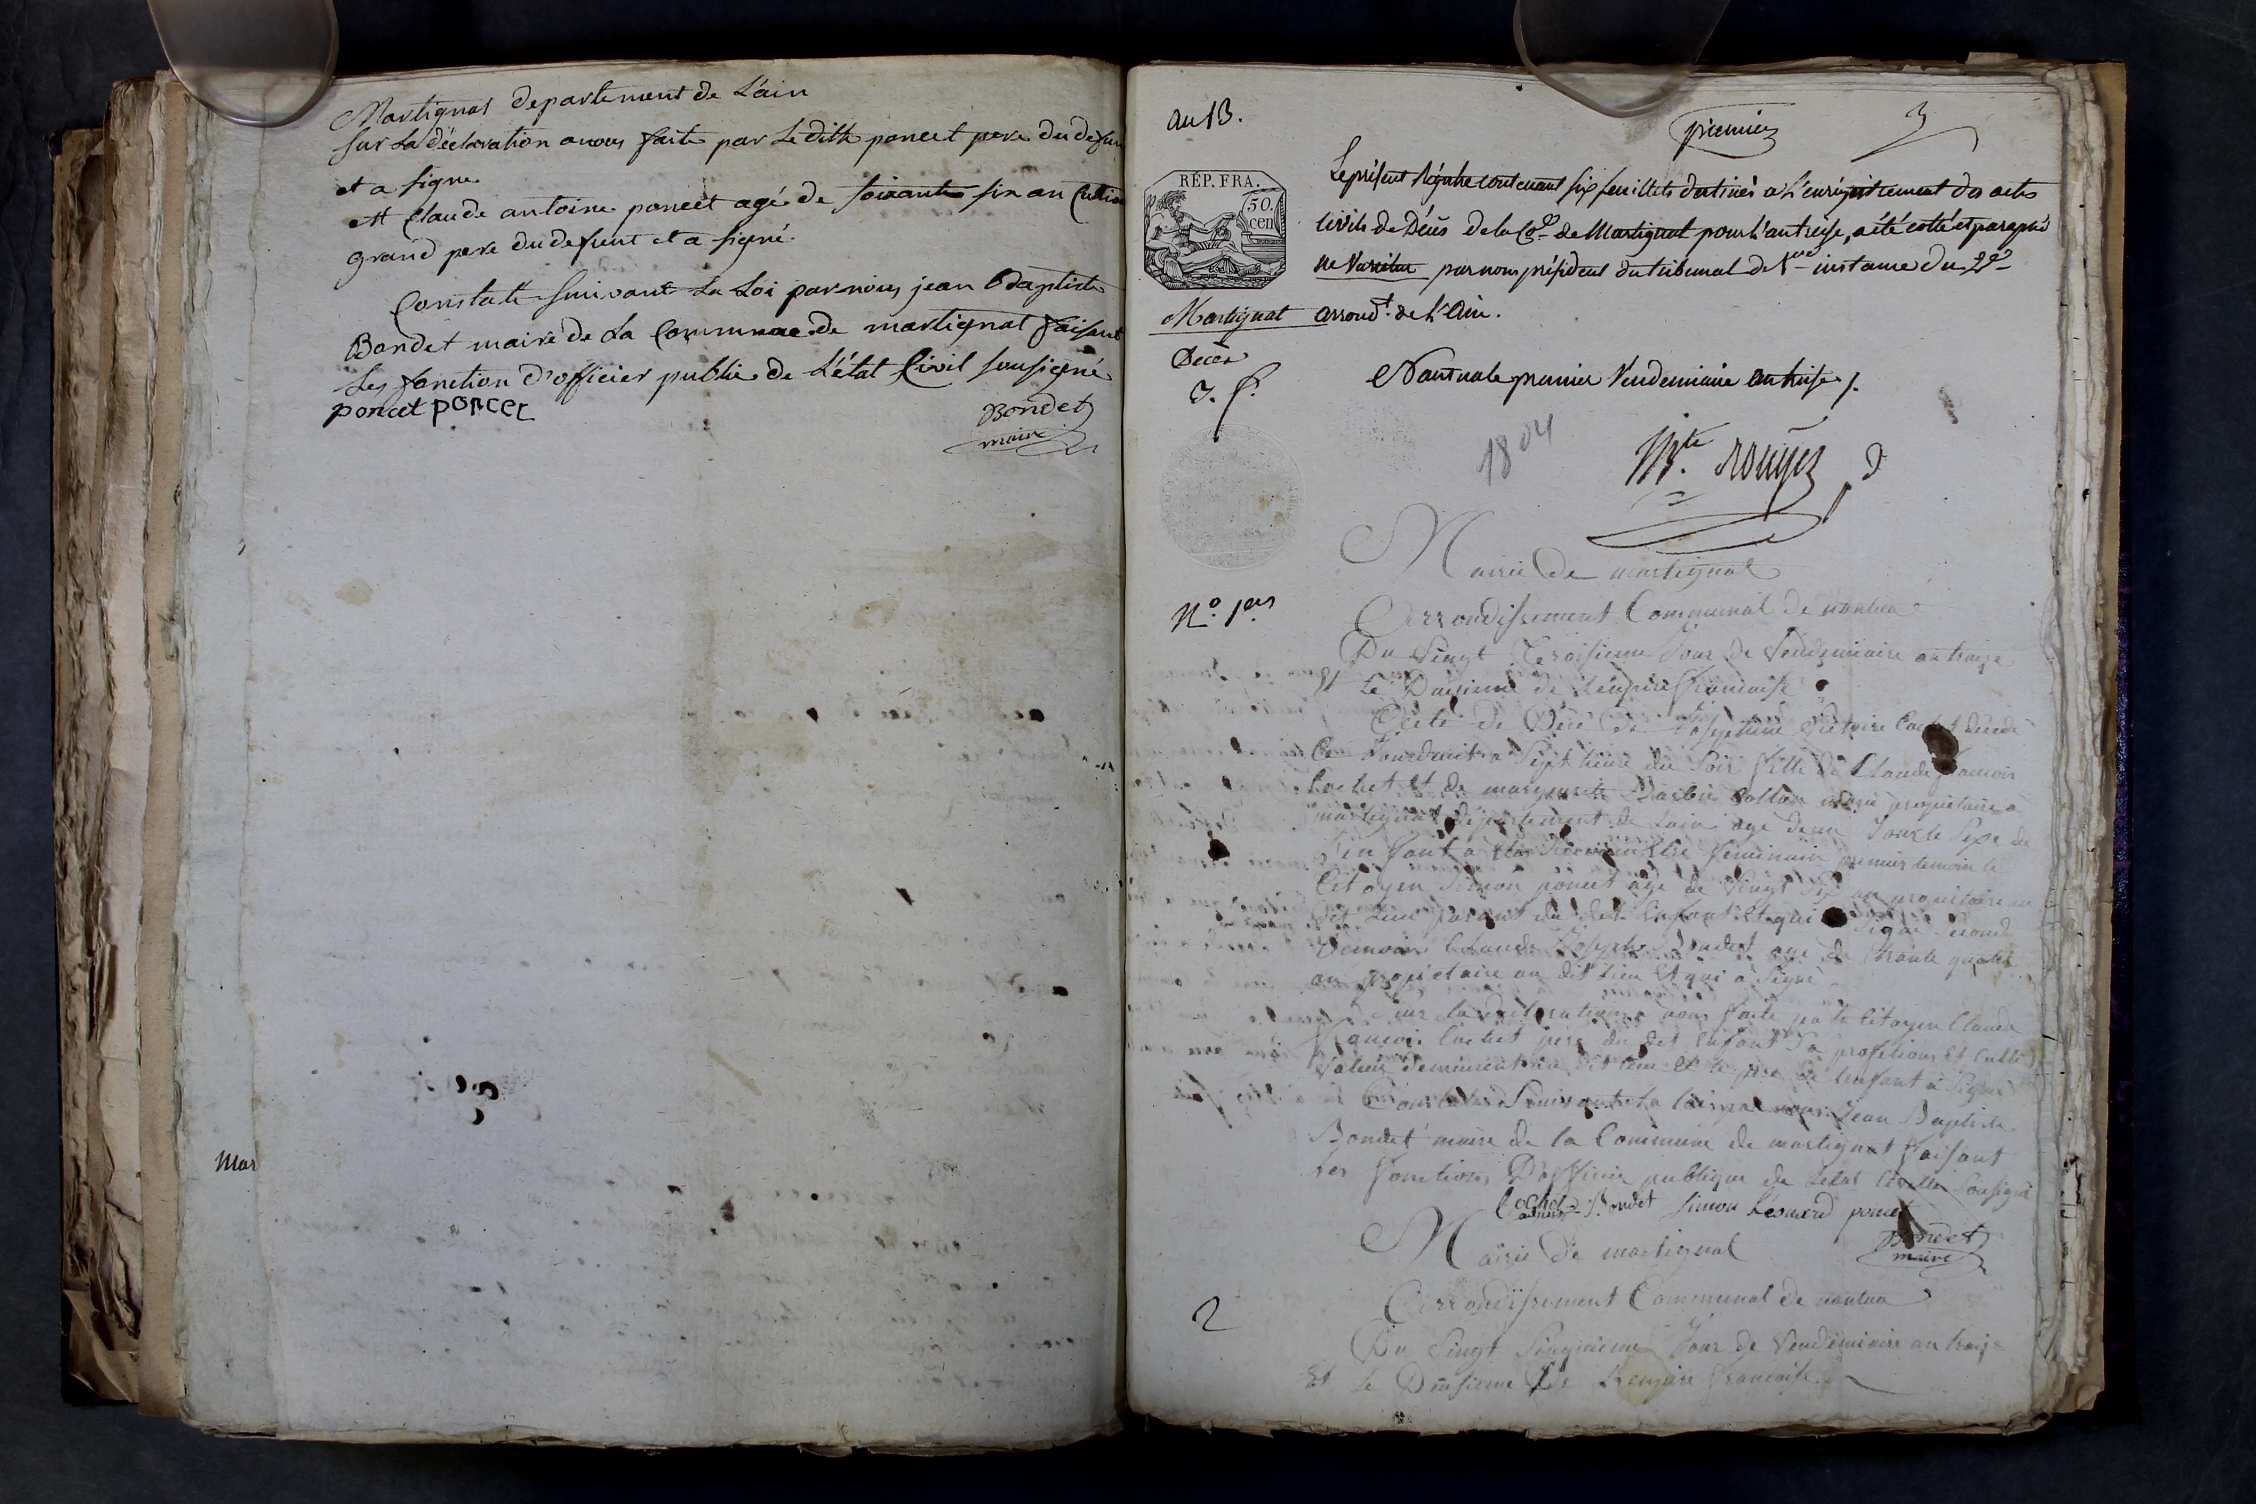 Martignat departement de L'ain
sur La déclaration a nous faite par Ledit poncet pere du defun
et a signe
et Claude antoine poncet agé de soixante six an Cultiva
grand pere du defunt et a signé.
Constaté suivant La Loi par nous jean Baptiste
Bondet maire de La Commune de martignat faisant
Les fonction d'officier public de L'état Civil sousigné
poncet poncet
Bondet
maire
Mar
an 13.
premier
3
RÉP. FRA.
50.
cen
Martignat
Décès
Le présent Régistre contenant six feuillets destinés à L'enrégistrement des actes
Civils de Décès de la Cne de Martignat pour L'an treize, a été cotté et paraphé
ne Varietur par nous président du tribunal de 1ere instance du 2e
arrondt. de L'Ain.
Nantua le premier Vendemiaire an treize.
1804
No. 1er
Mairie De martignat
Arrondissement Communal de nantua
Du Vingt Troisieme Jour de Vendemiaire an treize
Et Le Deusieme de L'empire francaise
Acte de Décé de Josephine Victoire Cochet décédé
à Sept heure du Soir fille de Claude francois
Cochet Et de marguerite propriétaire a
martignat département de Lain agé Jour le Sexe de
Lenfant a été feminin premier temoin le
Citoyen Simon poncet age de Vingt Six an propriétaire au
dit Lieu parent du dit Enfant Et qui a Signé Second
Temoin Claude Joseph Bondet age de Trante quatre
an propriétaire au dit Lieu Et qui a Signé
Sur la déclaration a nous faite par le Citoyen Claude
francois Cochet pere du dit Enfant profetions Et Culti
Vateur demeurent au dit Lieu Et le pere de Lenfant a Signé
Constaté Suivant La loi par nous Jean Baptiste
Bondet maire de la Commune de martignat faisant
Les fonctions D'officier publique de Letat Civille Sousigné
Cochet Bondet Simon Léonard poncet
Bondet
maire
2
Mairie De martignat
Arrondissement Communal de nantua
Du Vingt Sinquieme Jour de Vendemiaire an treize
Et Le Deusieme De Lempire francaise